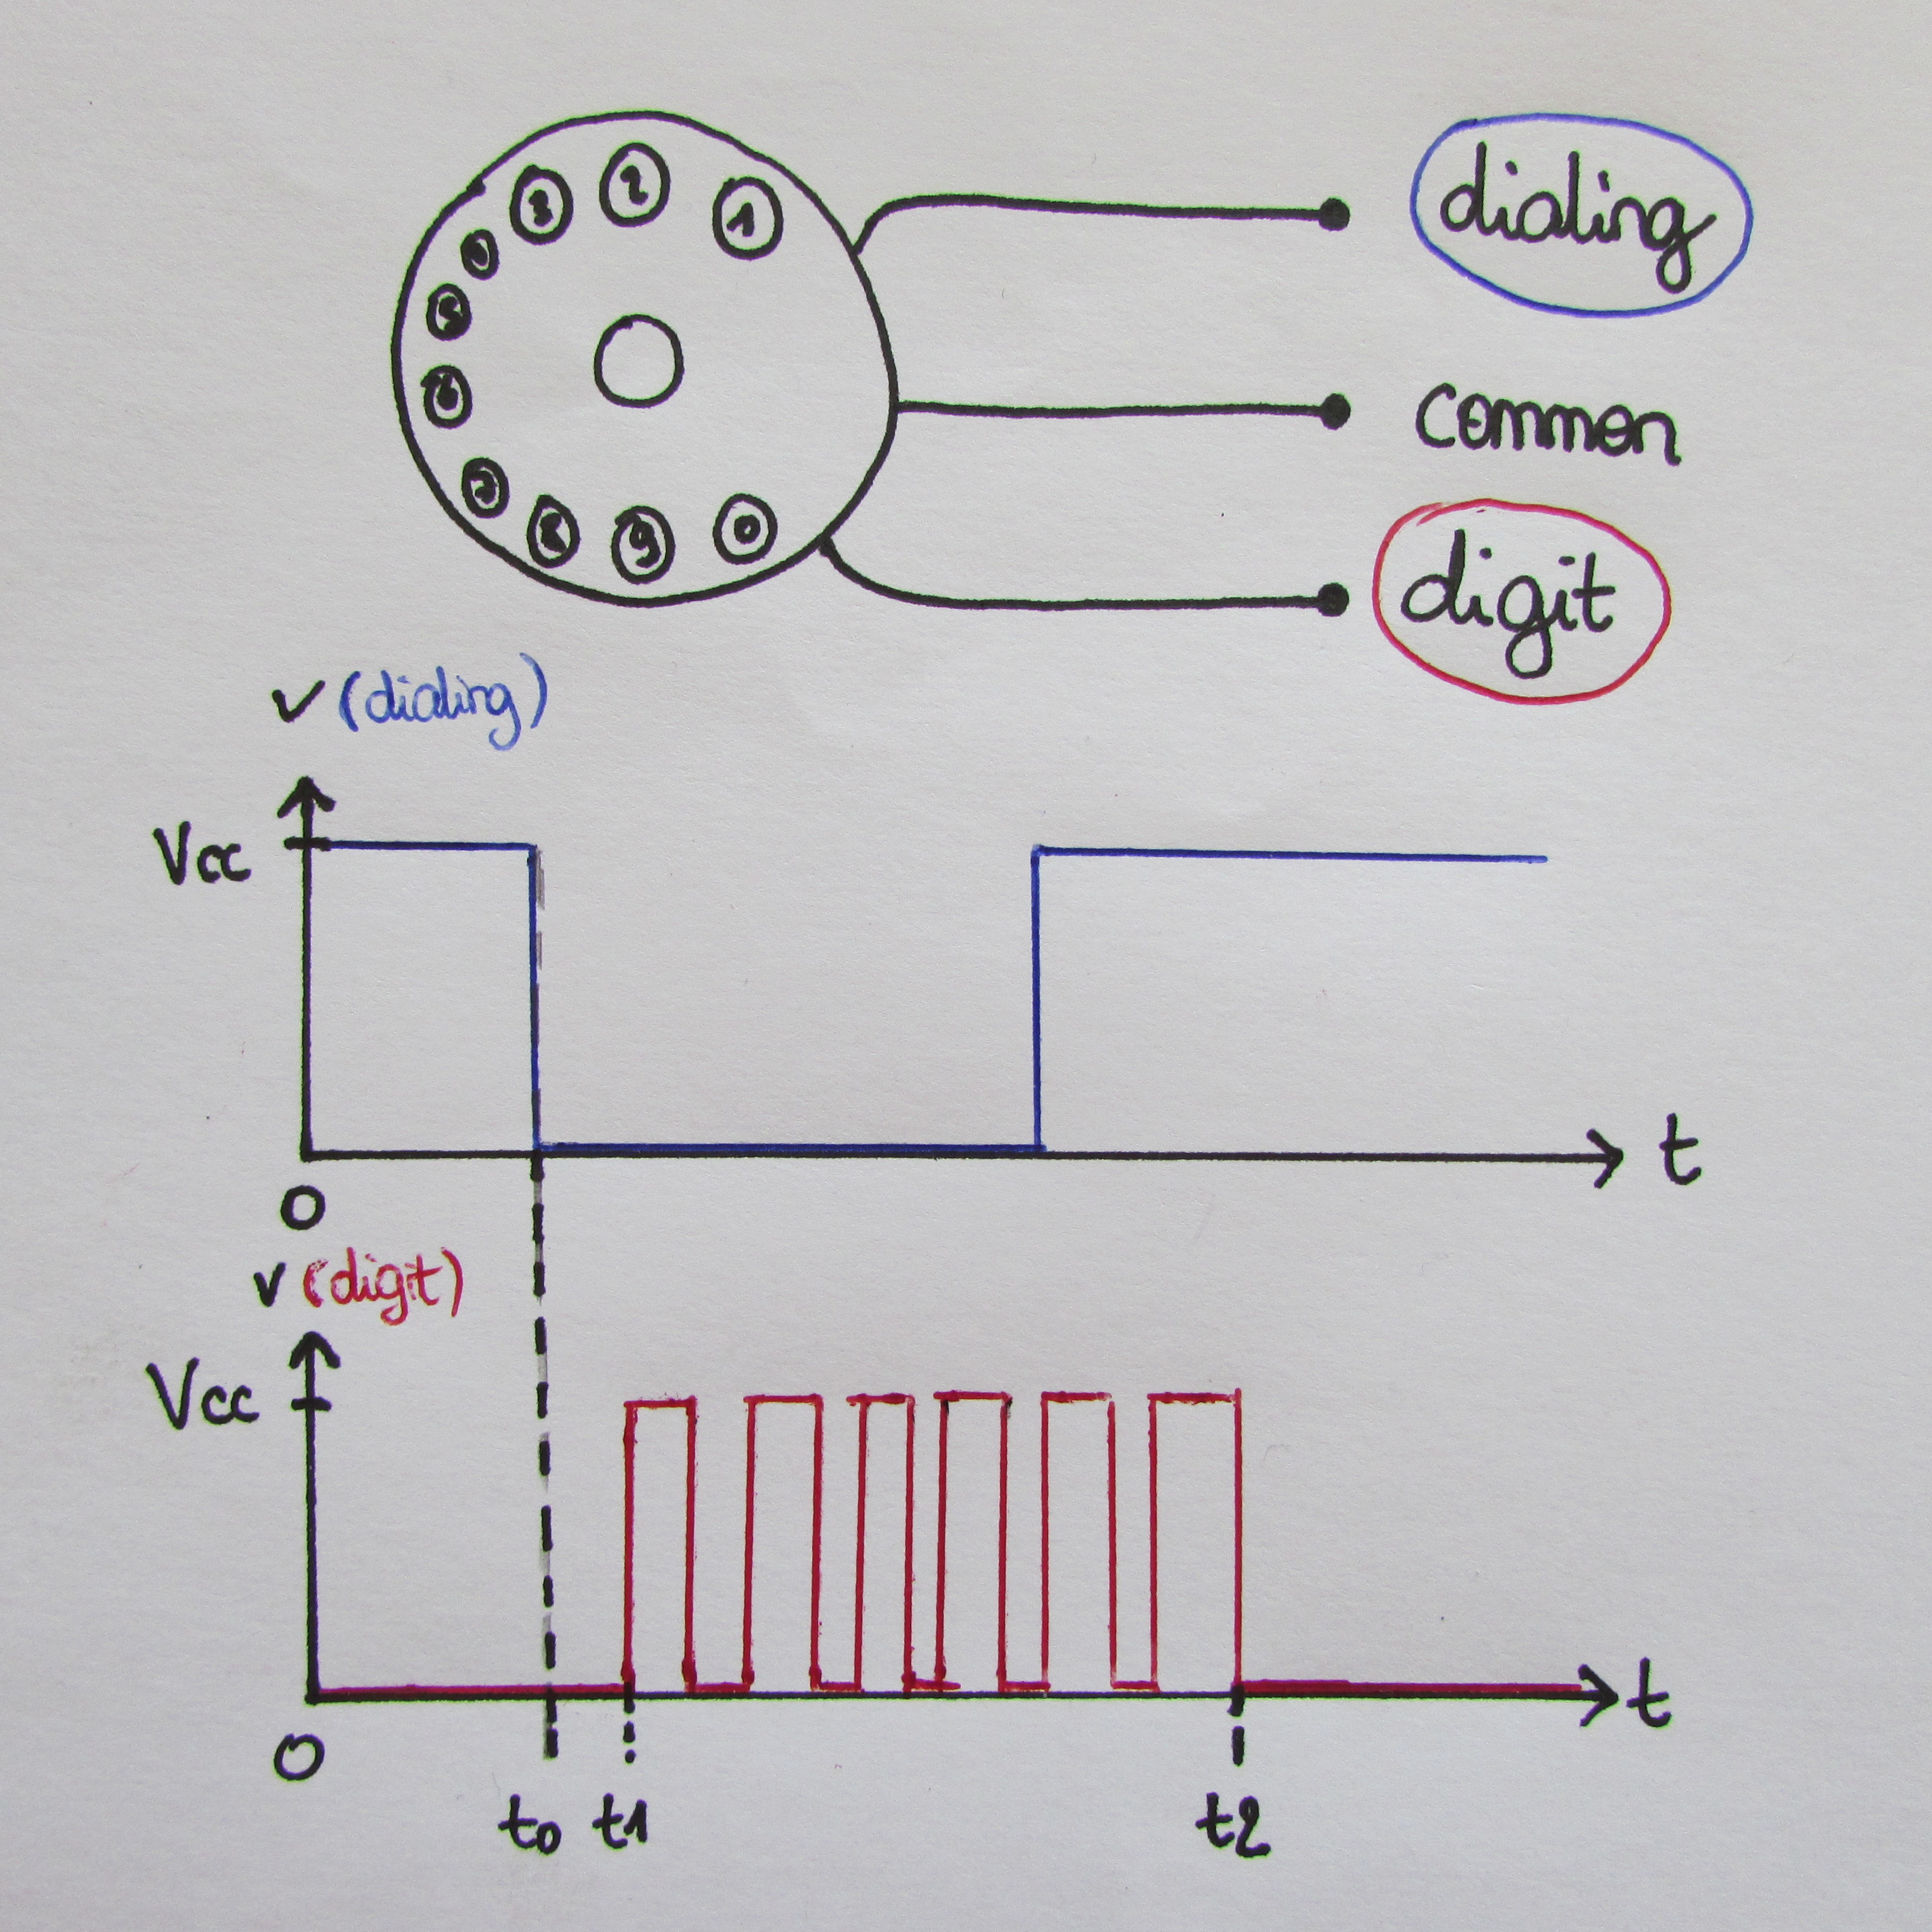 3 2 1
5
6
7
8 9 0
dialing
common
digit
v (dialing)
Vcc
t
0
v (digit)
Vcc
t
0
t0 t1 t2